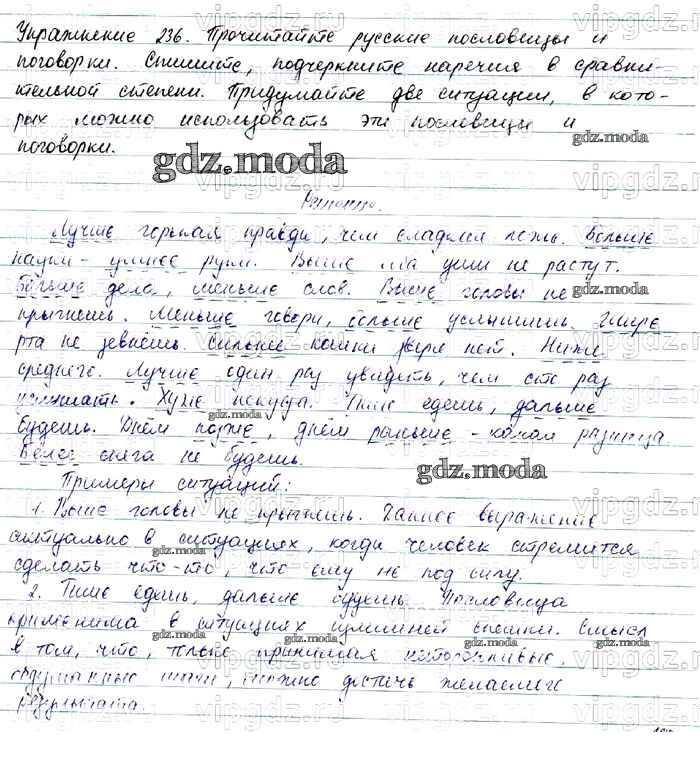 Упражнение 236. Прочитайте русские пословицы и
поговорки. Спишите, подчеркните наречия в сравни-
тельной степени. Придумайте две ситуации, в кото-
рых можно использовать эти пословицы и
поговорки.
gdz.moda
Решение.
Лучше горькая правда, чем сладкая ложь. Больше
науки - умнее руки. Выше лба уши не растут.
Больше дела, меньше слов. Выше головы не
прыгнешь. Меньше говори, больше услышишь. Шире
рта не зевнёшь. Сильнее кошки зверя нет. Ниже
среднего. Лучше один раз увидеть, чем сто раз
услышать. Хуже некуда. Тише едешь, дальше
будешь. Днём позже, днём раньше - какая разница
Белее снега не будешь.
Примеры ситуаций:
1. Выше головы не прыгнешь. Данное выражение
актуально в ситуациях, когда человек стремится
сделать что-то, что ему не под силу.
2. Тише едешь, дальше будешь. Пословица
применима в ситуациях излишней спешки. Смысл
в том, что, только принимая неторопливые,
обдуманные шаги, можно достичь желаемого
результата.